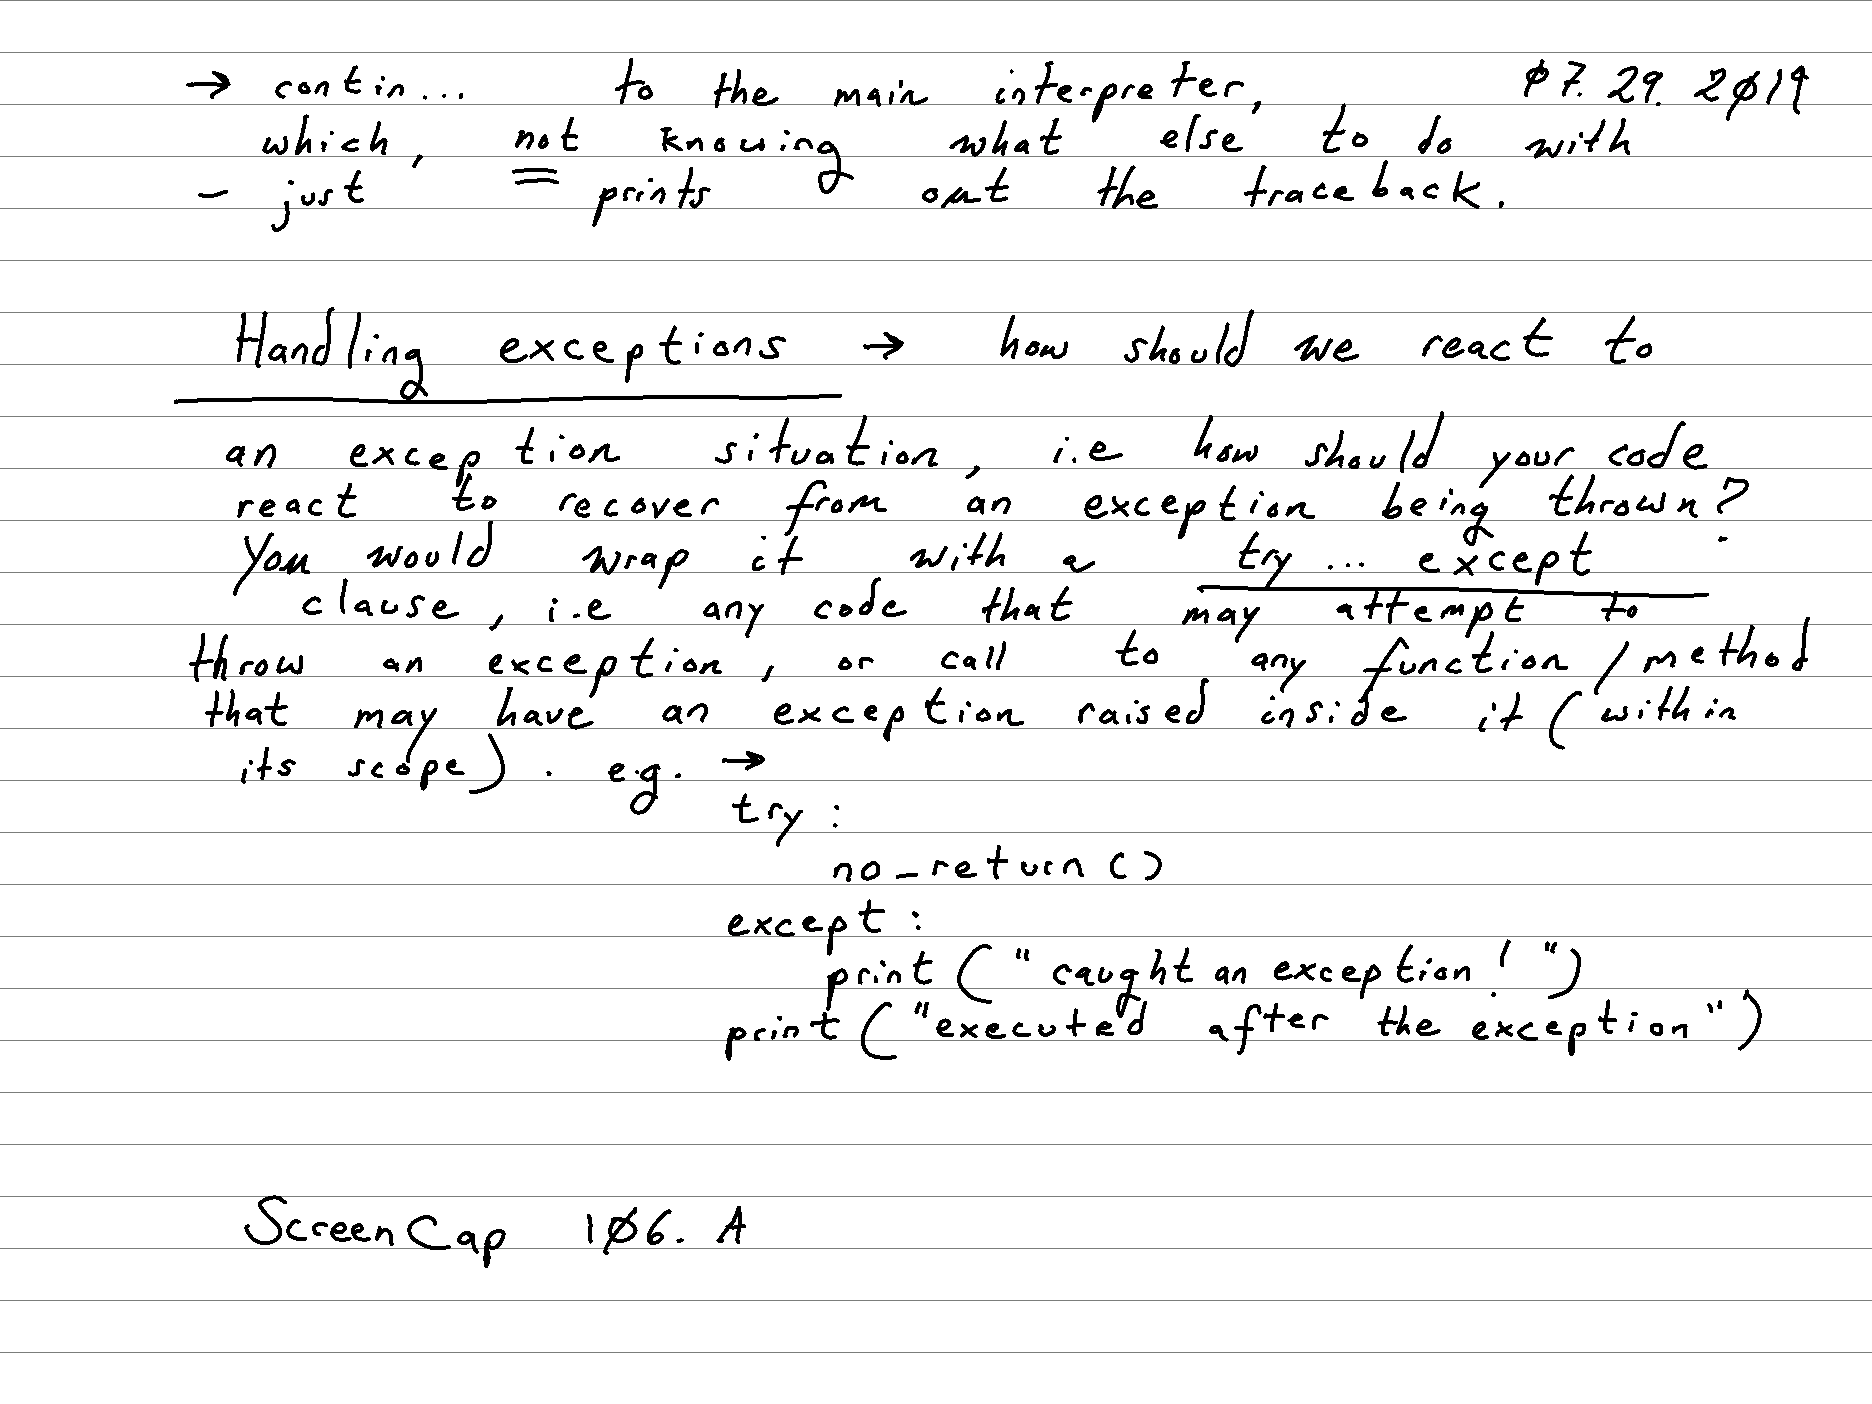 → contin... to the main interpreter, 07.29.2019
which, not knowing what else to do with
- just prints out the traceback.
Handling exceptions → how should we react to
an exception situation, i.e how should your code
react to recover from an exception being thrown?
You would wrap it with a try ... except
clause, i.e any code that may attempt to
throw an exception, or call to any function / method
that may have an exception raised inside it (within
its scope). e.g. →
try:
no_return()
except:
print("caught an exception!")
print("executed after the exception")
ScreenCap 106. A